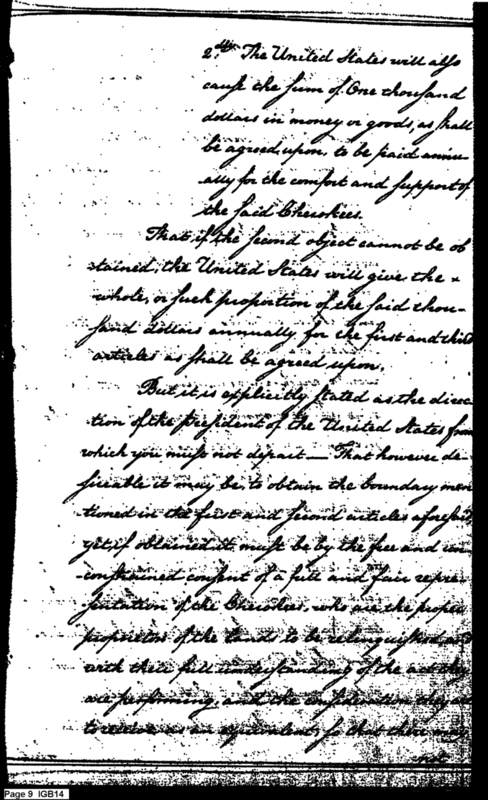 2.dly The United States will also
cause the sum of One thousand
dollars in money or goods, as shall
be agreed upon, to be paid annu-
ally for the comfort and support of
the said Cherokees.
That if the second object cannot be ob
tained, the United States will give the
whole, or such proportion of the said thou-
sand dollars annually for the first and third
articles as shall be agreed upon.
But it is explicitly stated as the direc
tion of the President of the United States from
which you must not depart — That however de-
sireable it may be, to obtain the boundary men
tioned in the first and second articles aforesaid,
yet, if obtained it must be by the free and un
-constrained consent of a full and fair repre-
sentation of the Cherokees, who are the proper
proprietors of the lands to be relinquished and
with their full understanding of the act they
are performing, and the consideration they are
to receive as an equivalent, so that there may
not
Page 9 IGB14